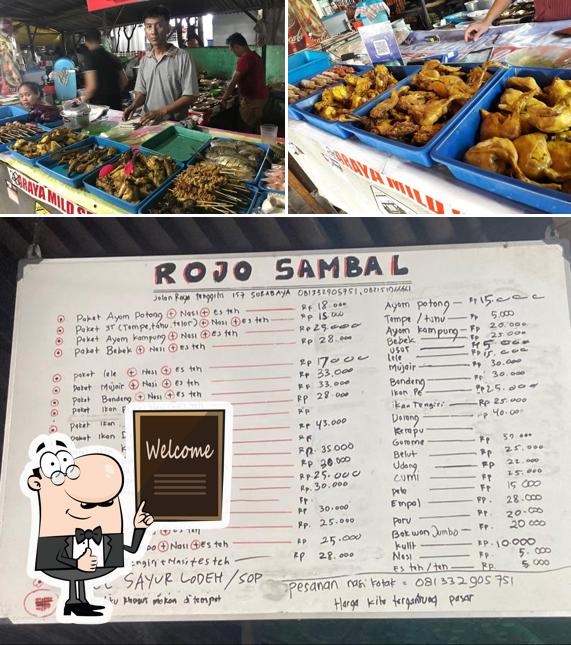 ARAYA MILD
ARAYA MILD
ROJO SAMBAL
Jalan Raya Tenggilis 157 SURABAYA 081332905751,
Paket Ayam Potong + Nasi + es teh Rp 18.000
Paket 3T (Tempe, tahu, telor) + Nasi + es teh Rp 15.000
Paket Ayam kampung + Nasi + es teh Rp 25.000
Paket Bebek + Nasi + es teh Rp 28.000
Paket lele + Nasi + es teh Rp 17.000
Paket Mujair + Nasi + es teh Rp 33.000
Paket Bandeng + Nasi + es teh Rp 33.000
Paket Ikan P Rp 28.000
Paket Ikan Rp
Paket Ikan D Rp 43.000
Rp
Rp 35.000
Rp 30.000
Rp 25.000
Rp. 30.000
Rp 30.000
Rp 25.000
+ Nasi + es teh Rp 25.000
+ Nasi + es teh Rp 28.000
SAYUR LODEH / SOP
khusus makan ditempat
Ayam potong — Rp 15.000
Tempe / tahu — Rp 5.000
Ayam kampung — Rp. 20.000
Bebek — Rp 25.000
Usus Rp 5.000
Lele Rp 15.000
Mujair Rp 30.000
Bandeng Rp 30.000
Ikan Pe Rp 25.000
Ikan Tengiri Rp 25.000
Dorang Rp 40.000
Kerapu
Gurame Rp
Belut Rp 25.000
Udang Rp 22.000
Cumi Rp 25.000
Rp 15.000
Empal Rp. 28.000
Paru Rp. 20.000
Bakwan Jumbo Rp 20.000
Kulit Rp. 10.000
Nasi Rp. 5.000
Es teh / teh Rp 5.000
pesanan nasi kotak = 081332905751
Harga kita tergantung pasar
Welcome